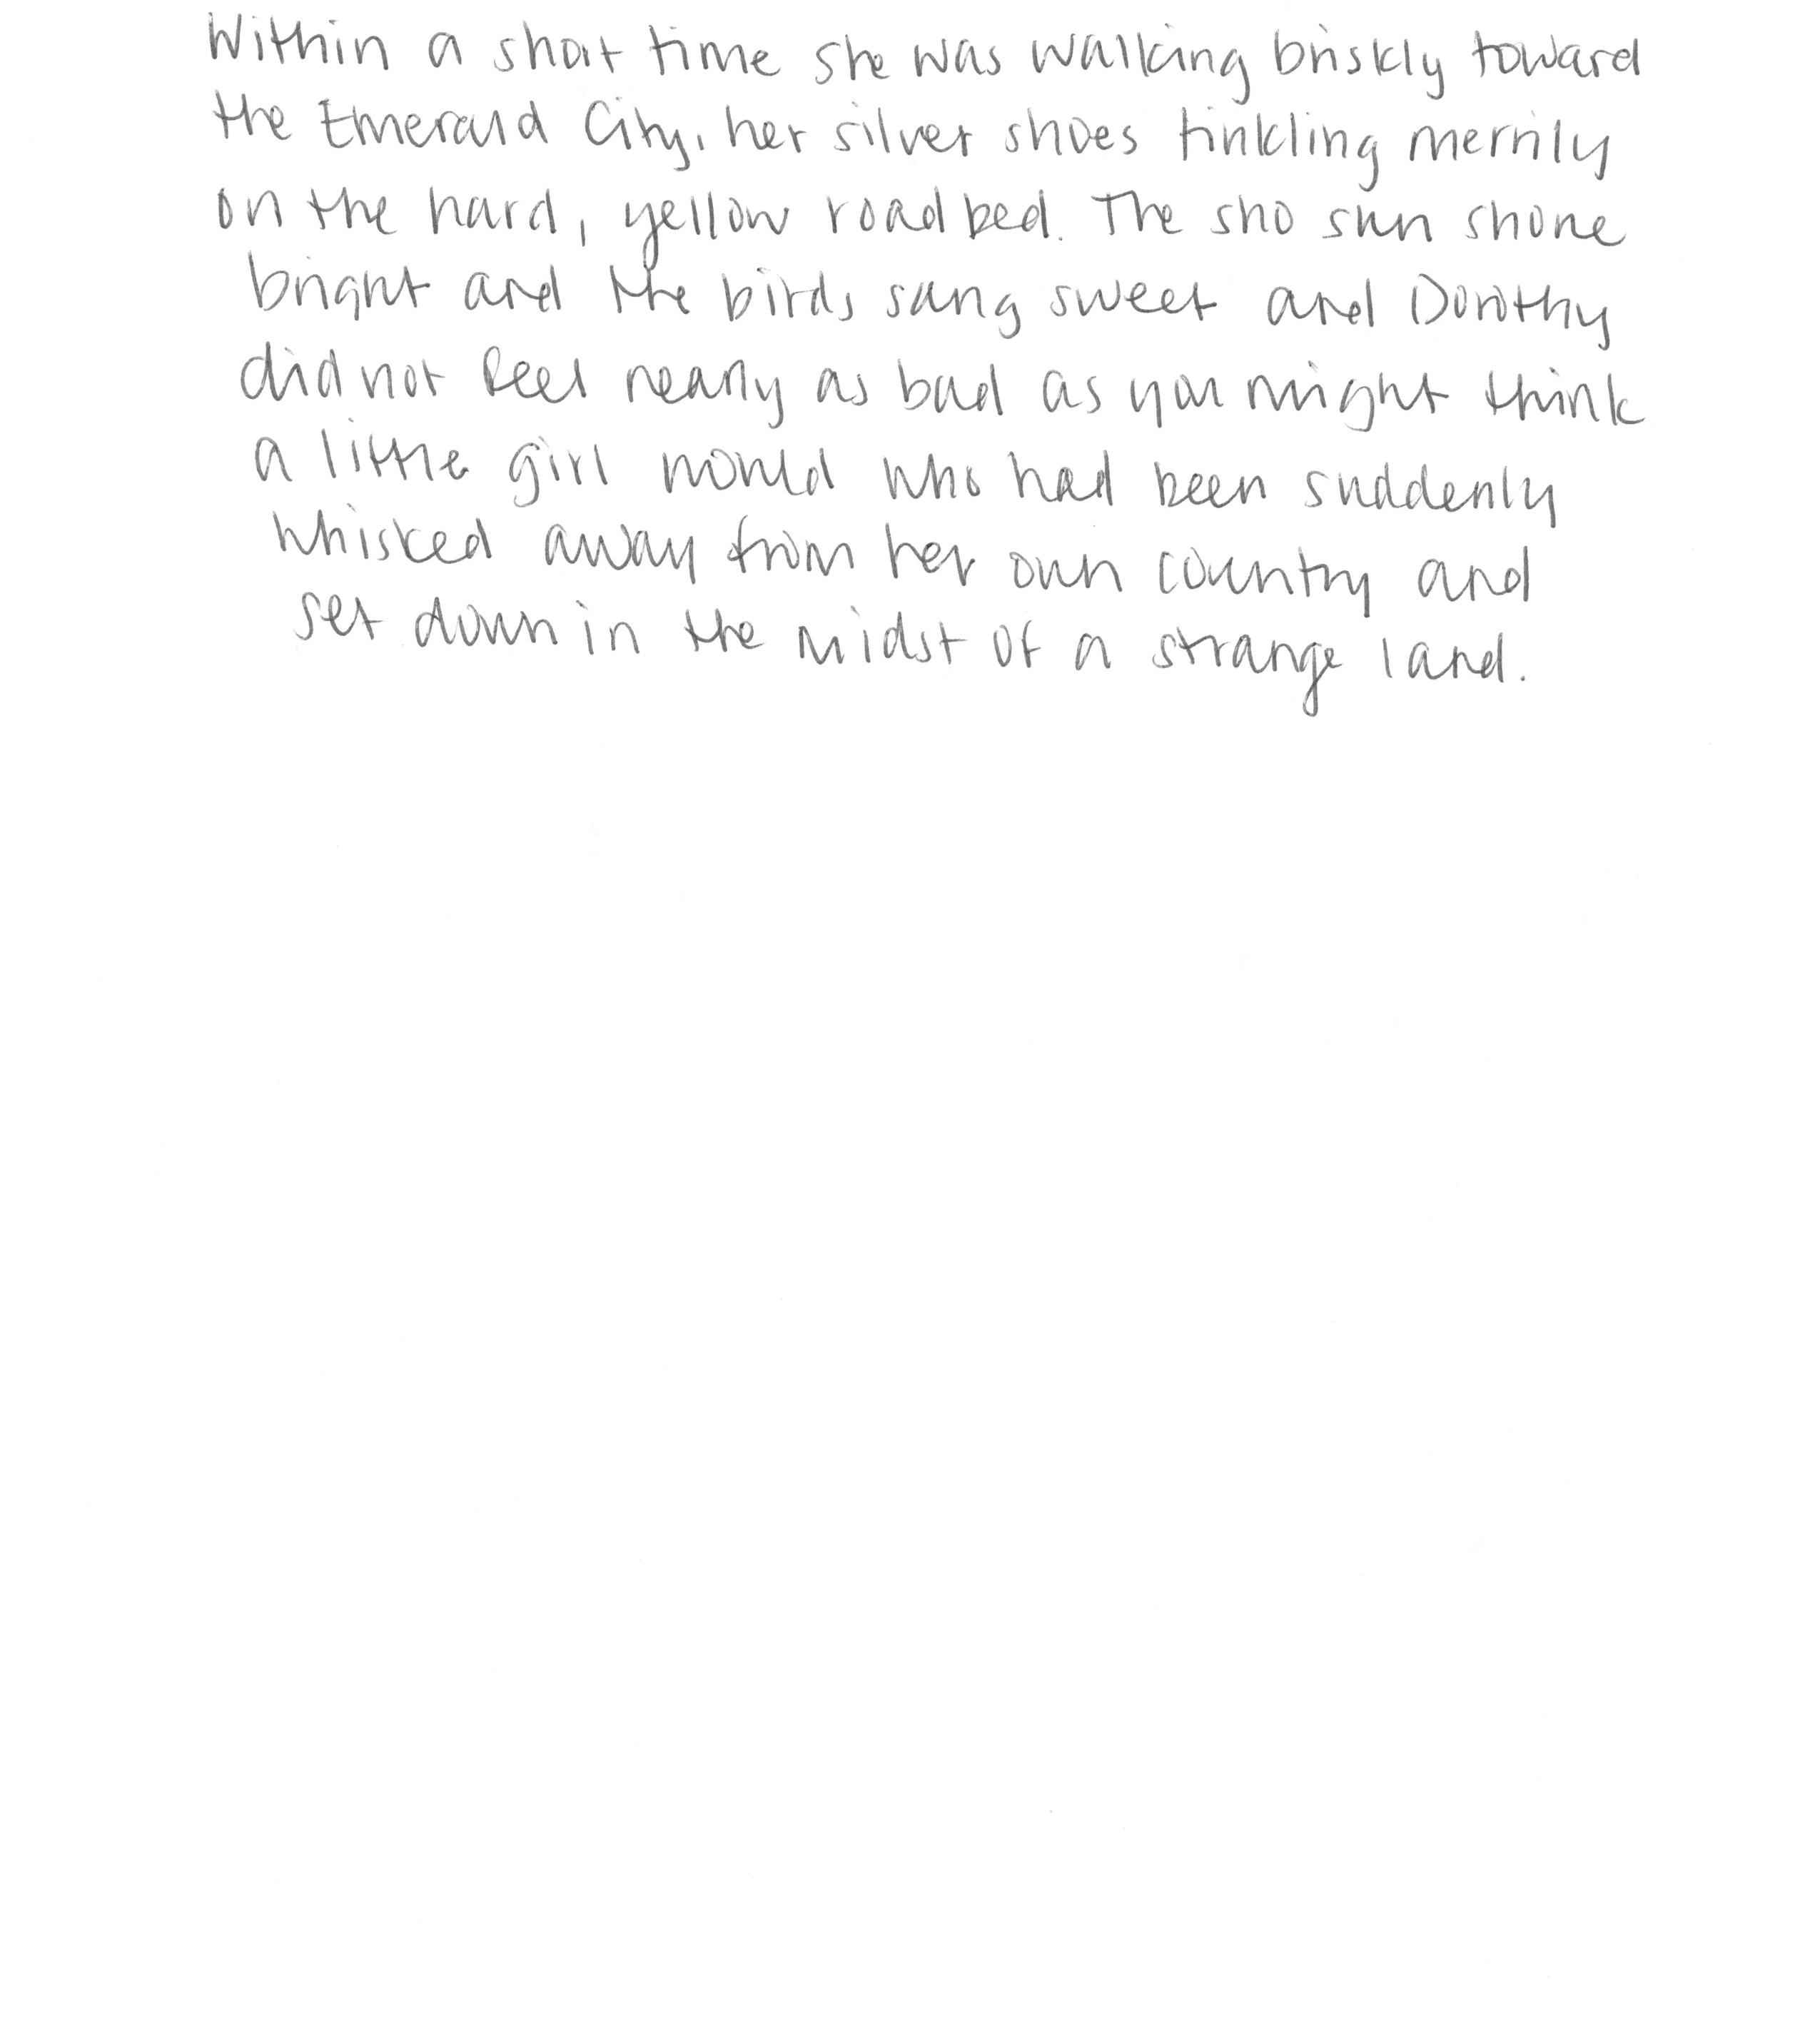 Within a short time she was walking briskly toward
the Emerald City, her silver shoes tinkling merrily
on the hard, yellow roadbed. The sho sun shone
bright and the birds sang sweet and Dorothy
did not feel nearly as bad as you might think
a little girl would who had been suddenly
whisked away from her own country and
set down in the midst of a strange land.